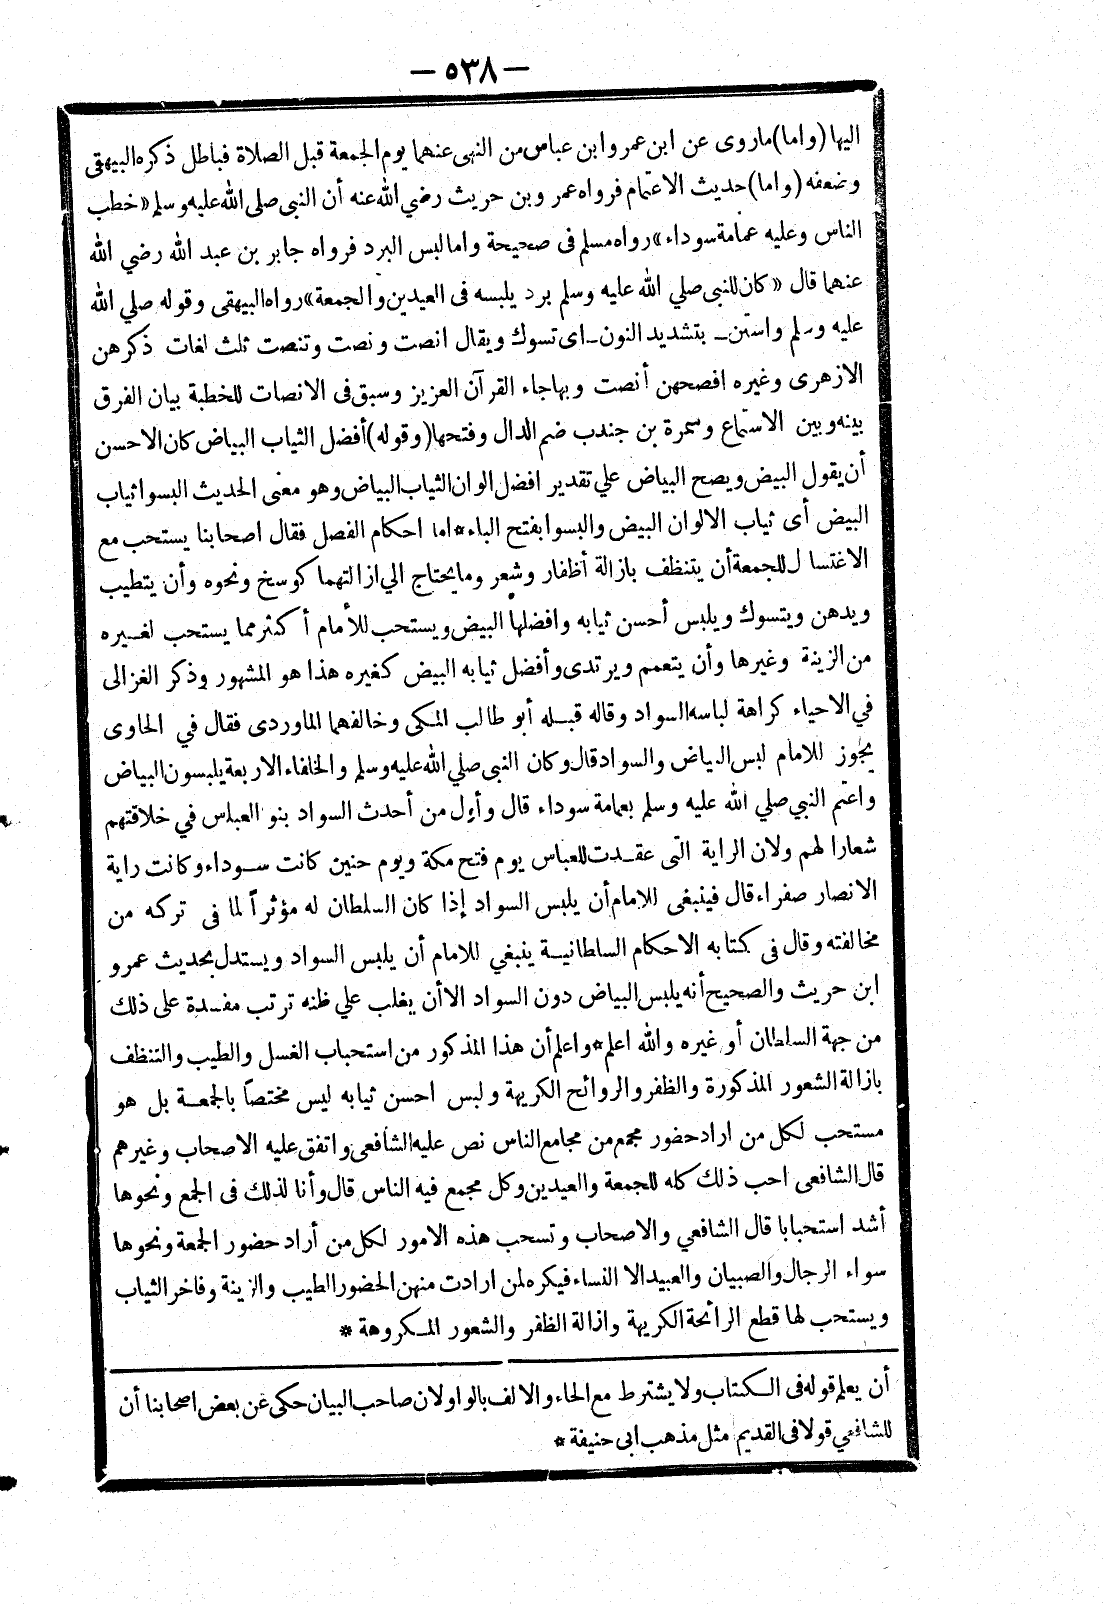 — ٥٣٨ —
اليها (واما) ماروى عن ابن عمر وابن عباس من النهى عنهما يوم الجمعة قبل الصلاة فباطل ذكره البيهقى
وضعفه (واما) حديث الاعتمام فرواه عمر وبن حريث رضي الله عنه أن النبى صلى الله عليه وسلم «خطب
الناس وعليه عمامة سوداء» رواه مسلم فى صحيحة واما لبس البرد فرواه جابر بن عبد الله رضي الله
عنهما قال «كان للنبى صلي الله عليه وسلم برد يلبسه فى العيدين والجمعة» رواه البيهقى وقوله صلي الله
عليه وسلم واستن ـ بتشديد النون ـ اى تسوك ويقال انصت ونصت وتنصت ثلث لغات ذكرهن
الازهرى وغيره افصحهن أنصت وبها جاء القرآن العزيز وسبق فى الانصات للخطبة بيان الفرق
بينه وبين الاستماع وسمرة بن جندب ضم الدال وفتحها (وقوله) أفضل الثياب البياض كان الاحسن
أن يقول البيض ويصح البياض علي تقدير افضل الوان الثياب البياض وهو معنى الحديث البسوا ثياب
البيض أى ثياب الالوان البيض والبسوا بفتح الباء * اما احكام الفصل فقال اصحابنا يستحب مع
الاغتسال للجمعة أن يتنظف بازالة أظفار وشعر وما يحتاج الي ازالتهما كوسخ ونحوه وأن يتطيب
ويدهن ويتسوك ويلبس أحسن ثيابه وافضلها البيض ويستحب للأمام أكثر مما يستحب لغيره
من الزينة وغيرها وأن يتعمم ويرتدى وأفضل ثيابه البيض كغيره هذا هو المشهور وذكر الغزالى
في الاحياء كراهة لباسه السواد وقاله قبله أبو طالب المكى وخالفهما الماوردى فقال في الحاوى
يجوز للامام لبس البياض والسواد قال وكان النبى صلي الله عليه وسلم والخلفاء الاربعة يلبسون البياض
واعتم النبي صلي الله عليه وسلم بعمامة سوداء قال وأول من أحدث السواد بنو العباس في خلافتهم
شعارا لهم ولان الراية التى عقدت للعباس يوم فتح مكة ويوم حنين كانت سوداء وكانت راية
الانصار صفراء قال فينبغى للامام أن يلبس السواد إذا كان السلطان له مؤثراً لما فى تركه من
مخالفته وقال فى كتابه الاحكام السلطانية ينبغي للامام أن يلبس السواد ويستدل بحديث عمرو
ابن حريث والصحيح أنه يلبس البياض دون السواد الا أن يغلب علي ظنه ترتب مفسدة على ذلك
من جهة السلطان أو غيره والله اعلم * واعلم أن هذا المذكور من استحباب الغسل والطيب والتنظف
بازالة الشعور المذكورة والظفر والروائح الكريهة ولبس احسن ثيابه ليس مختصاً بالجمعة بل هو
مستحب لكل من اراد حضور مجمع من مجامع الناس نص عليه الشافعى واتفق عليه الاصحاب وغيرهم
قال الشافعى احب ذلك كله للجمعة والعيدين وكل مجمع فيه الناس قال وأنا لذلك فى الجمع ونحوها
أشد استحبابا قال الشافعي والاصحاب وتسحب هذه الامور لكل من أراد حضور الجمعة ونحوها
سواء الرجال والصبيان والعبيد الا النساء فيكره لمن ارادت منهن الحضور الطيب والزينة وفاخر الثياب
ويستحب لها قطع الرائحة الكريهة وازالة الظفر والشعور المكروهة *
أن يعلم قوله فى الكتاب ولا يشترط مع الحاء والالف بالواو لان صاحب البيان حكى عن بعض اصحابنا أن
للشافعي قولا فى القديم مثل مذهب ابى حنيفة *